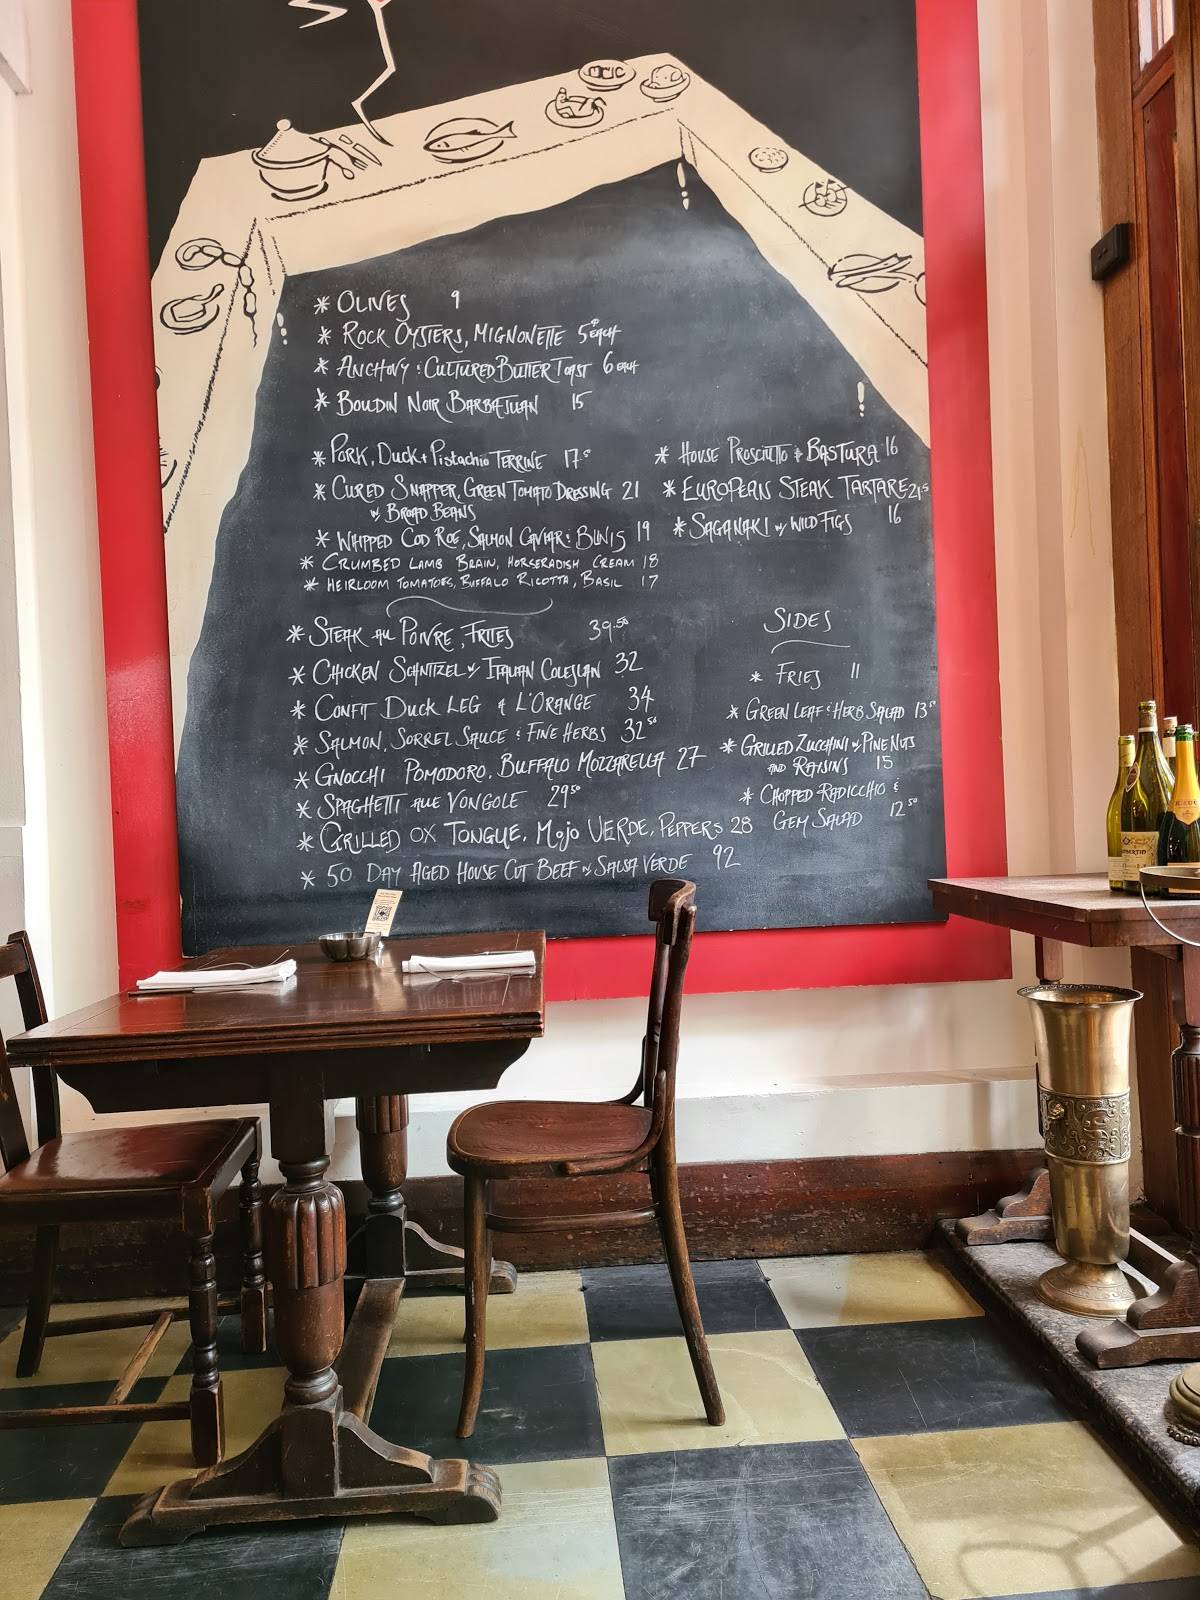 * OLIVES 9
* ROCK OYSTERS, MIGNONETTE 5.⁰ EACH
* ANCHOVY & CULTURED BUTTER TOAST 6 EACH
* BOUDIN NOIR BARBAJUAN 15
* PORK, DUCK + PISTACHIO TERRINE 17.⁵
* CURED SNAPPER, GREEN TOMATO DRESSING 21
w/ BROAD BEANS
* WHIPPED COD ROE, SALMON CAVIAR & BLINIS 19
* CRUMBED LAMB BRAIN, HORSERADISH CREAM 18
* HEIRLOOM TOMATOES, BUFFALO RICOTTA, BASIL 17
* HOUSE PROSCIUTTO & BASTURA 16
* EUROPEAN STEAK TARTARE 21.⁵
* SAGANAKI w/ WILD FIGS 16
* STEAK AU POIVRE, FRITES 39.⁵⁰
* CHICKEN SCHNITZEL w/ ITALIAN COLESLAW 32
* CONFIT DUCK LEG à L'ORANGE 34
* SALMON, SORREL SAUCE & FINE HERBS 32⁵⁰
* GNOCCHI POMODORO, BUFFALO MOZZARELLA 27
* SPAGHETTI ALLE VONGOLE 29⁵⁰
* GRILLED OX TONGUE, MOJO VERDE, PEPPERS 28
* 50 DAY AGED HOUSE CUT BEEF w/ SALSA VERDE 92
SIDES
* FRIES 11
* GREEN LEAF & HERB SALAD 13⁵⁰
* GRILLED ZUCCHINI w/ PINE NUTS
AND RAISINS 15
* CHOPPED RADICCHIO &
GEM SALAD 12⁵⁰